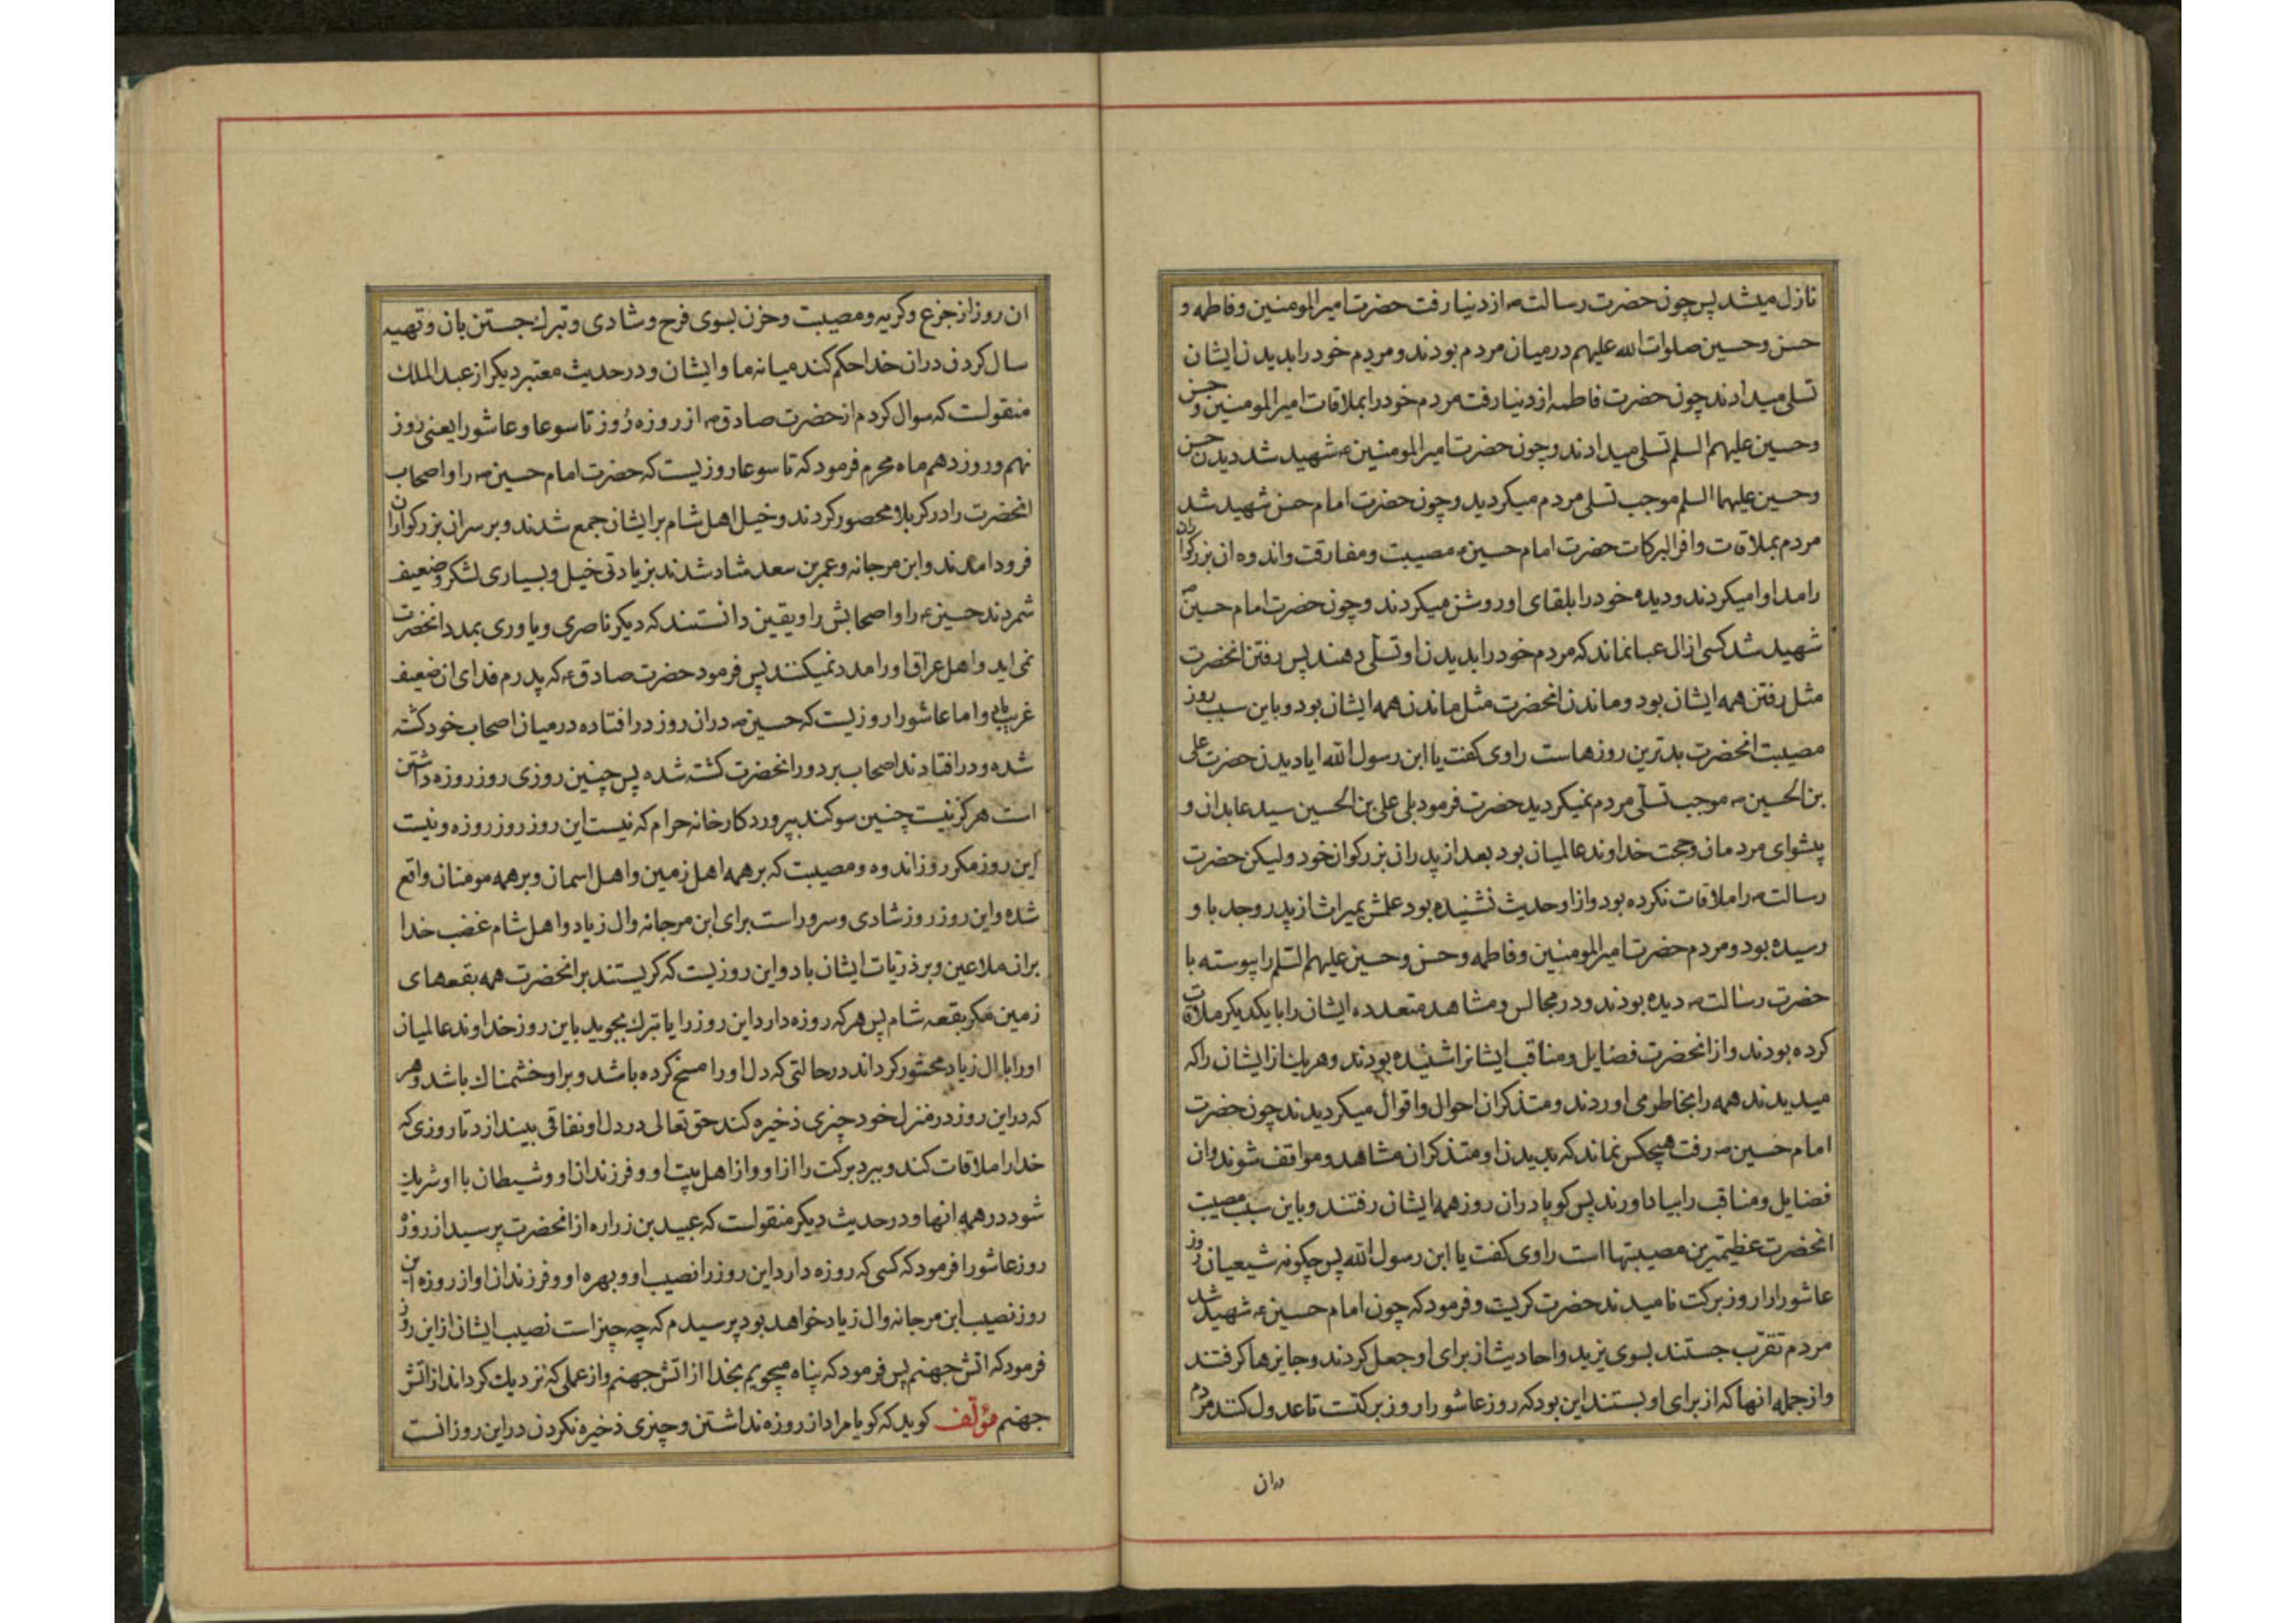 نازل میشد پس چون حضرت رسالت ص از دنیا رفت حضرت امیرالمومنین و فاطمه و
حسن و حسین صلوات الله علیهم در میان مردم بودند و مردم خود را بدیدن ایشان
تسلی میدادند چون حضرت فاطمه از دنیا رفت مردم خود را بملاقات امیرالمومنین و حسن
و حسین علیهم السلم تسلی میدادند و چون حضرت امیرالمومنین ع شهید شد دیدن حسن
و حسین علیهما السلم موجب تسلی مردم میکردید و چون حضرت امام حسن شهید شد
مردم بملاقات وافر البرکات حضرت امام حسین ع مصیبت و مفارقت و اندوه ان بزرکواران
را مداوا میکردند و دیده خود را بلقای او روشن میکردند و چون حضرت امام حسین ص
شهید شد کسی از ال عبا نماند که مردم خود را بدیدن او تسلی دهند پس رفتن انحضرت
مثل رفتن همه ایشان بود و ماندن انحضرت مثل ماندن همه ایشان بود و باین سبب روز
مصیبت انحضرت بدترین روزهاست راوی کفت یا ابن رسول الله ایا دیدن حضرت علی
بن الحسین ص موجب تسلی مردم نمیکردید حضرت فرمود بلی علی بن الحسین سید عابدان و
پیشوای مردمان و حجت خداوند عالمیان بود بعد از پدران بزرکوان خود ولیکن حضرت
رسالت ص را ملاقات نکرده بود و از او حدیث نشنیده بود علمش بمیراث از پدر و جد با و
رسیده بود و مردم حضرت امیرالمومنین و فاطمه و حسن و حسین علیهم السلم را پیوسته با
حضرت رسالت ص دیده بودند و در مجالس و مشاهد متعدده ایشان را با یکدیکر ملاقات
کرده بودند و از انحضرت فضایل و مناقب ایشانرا شنیده بودند و هر یک از ایشان را که
میدیدند همه را بخاطر می اوردند و متذکر ان احوال و اقوال میکردیدند چون حضرت
امام حسین ص رفت هیچکس نماند که بدیدن او متذکر ان مشاهد و مواقف شوند و ان
فضایل و مناقب را بیاد اورند پس کویا در ان روز همه ایشان رفتند و باین سبب مصیبت
انحضرت عظیمترین مصیبتها است راوی کفت یا ابن رسول الله پس چکونه شیعیان روز
عاشورا را روز برکت نامیدند حضرت کریست و فرمود که چون امام حسین ع شهید شد
مردم تقرب جستند بسوی یزید و احادیث از برای او جعل کردند و جایزها کرفتند
و از جمله انها که از برای او بستند این بود که روز عاشورا روز برکتت تا عدول کنند مردم
در ان
ان روز از جزع و کریه و مصیبت و حزن بسوی فرح و شادی و تبرک جستن بان و تهیه
سال کردن در ان خدا حکم کند میانه ما و ایشان و در حدیث معتبر دیکر از عبدالملک
منقولست که سوال کردم از حضرت صادق ص از روزه روز تاسوعا و عاشورا یعنی روز
نهم و روز دهم ماه محرم فرمود که تاسوعا روزیست که حضرت امام حسین ص را و اصحاب
انحضرت را در کربلا محصور کردند و خیل اهل شام بر ایشان جمع شدند و بر سر ان بزرکواران
فرود امدند و ابن مرجانه و عمر بن سعد شاد شدند بزیادتی خیل و بسیاری لشکر و ضعیف
شمردند حسین ع را و اصحابش را و یقین دانستند که دیکر ناصری و یاوری بمدد انحضرت
نمی اید و اهل عراق او را مدد نمیکنند پس فرمود حضرت صادق ع که پدرم فدای ان ضعیف
غریب باد و اما عاشورا روزیست که حسین ص در ان روز در افتاده در میان اصحاب خود کشته
شده و در افتادند اصحاب بر دور انحضرت کشته شده پس چنین روزی روز روزه داشتن
است هرکز نیست چنین سوکند بپروردکار خانه حرام که نیست این روز روز روزه و نیست
این روز مکر روز اندوه و مصیبت که بر همه اهل زمین و اهل اسمان و بر همه مومنان واقع
شده و این روز روز شادی و سرور است برای ابن مرجانه و ال زیاد و اهل شام غضب خدا
بر ان ملاعین و بر ذریات ایشان باد و این روزیست که کریستند بر انحضرت همه بقعهای
زمین مکر بقعه شام پس هر که روزه دارد این روز را یا تبرک بجوید باین روز خداوند عالمیان
او را با ال زیاد محشور کرداند در حالتی که دل او را مسخ کرده باشد و بر او خشمناک باشد و هر
که در این روز در منزل خود چیزی ذخیره کند حق تعالی در دل او نفاقی بیندازد تا روزی که
خدا را ملاقات کند و ببرد برکت را از او و از اهل بیت او و فرزندان او و شیطان با او شریک
شود در همه انها و در حدیث دیکر منقولست که عبید بن زراره از انحضرت پرسید از روزه
روز عاشورا فرمود که کسی که روزه دارد این روز را نصیب او و بهره او و فرزندان او از روزه این
روز نصیب ابن مرجانه و ال زیاد خواهد بود پرسیدم که چه چیز است نصیب ایشان از این روز
فرمود که اتش جهنم پس فرمود که پناه میجویم بخدا از اتش جهنم و از عملی که نزدیک کرداند از اتش
جهنم مؤلف کوید که کویا مراد از روزه نداشتن و چیزی ذخیره نکردن در این روز انست